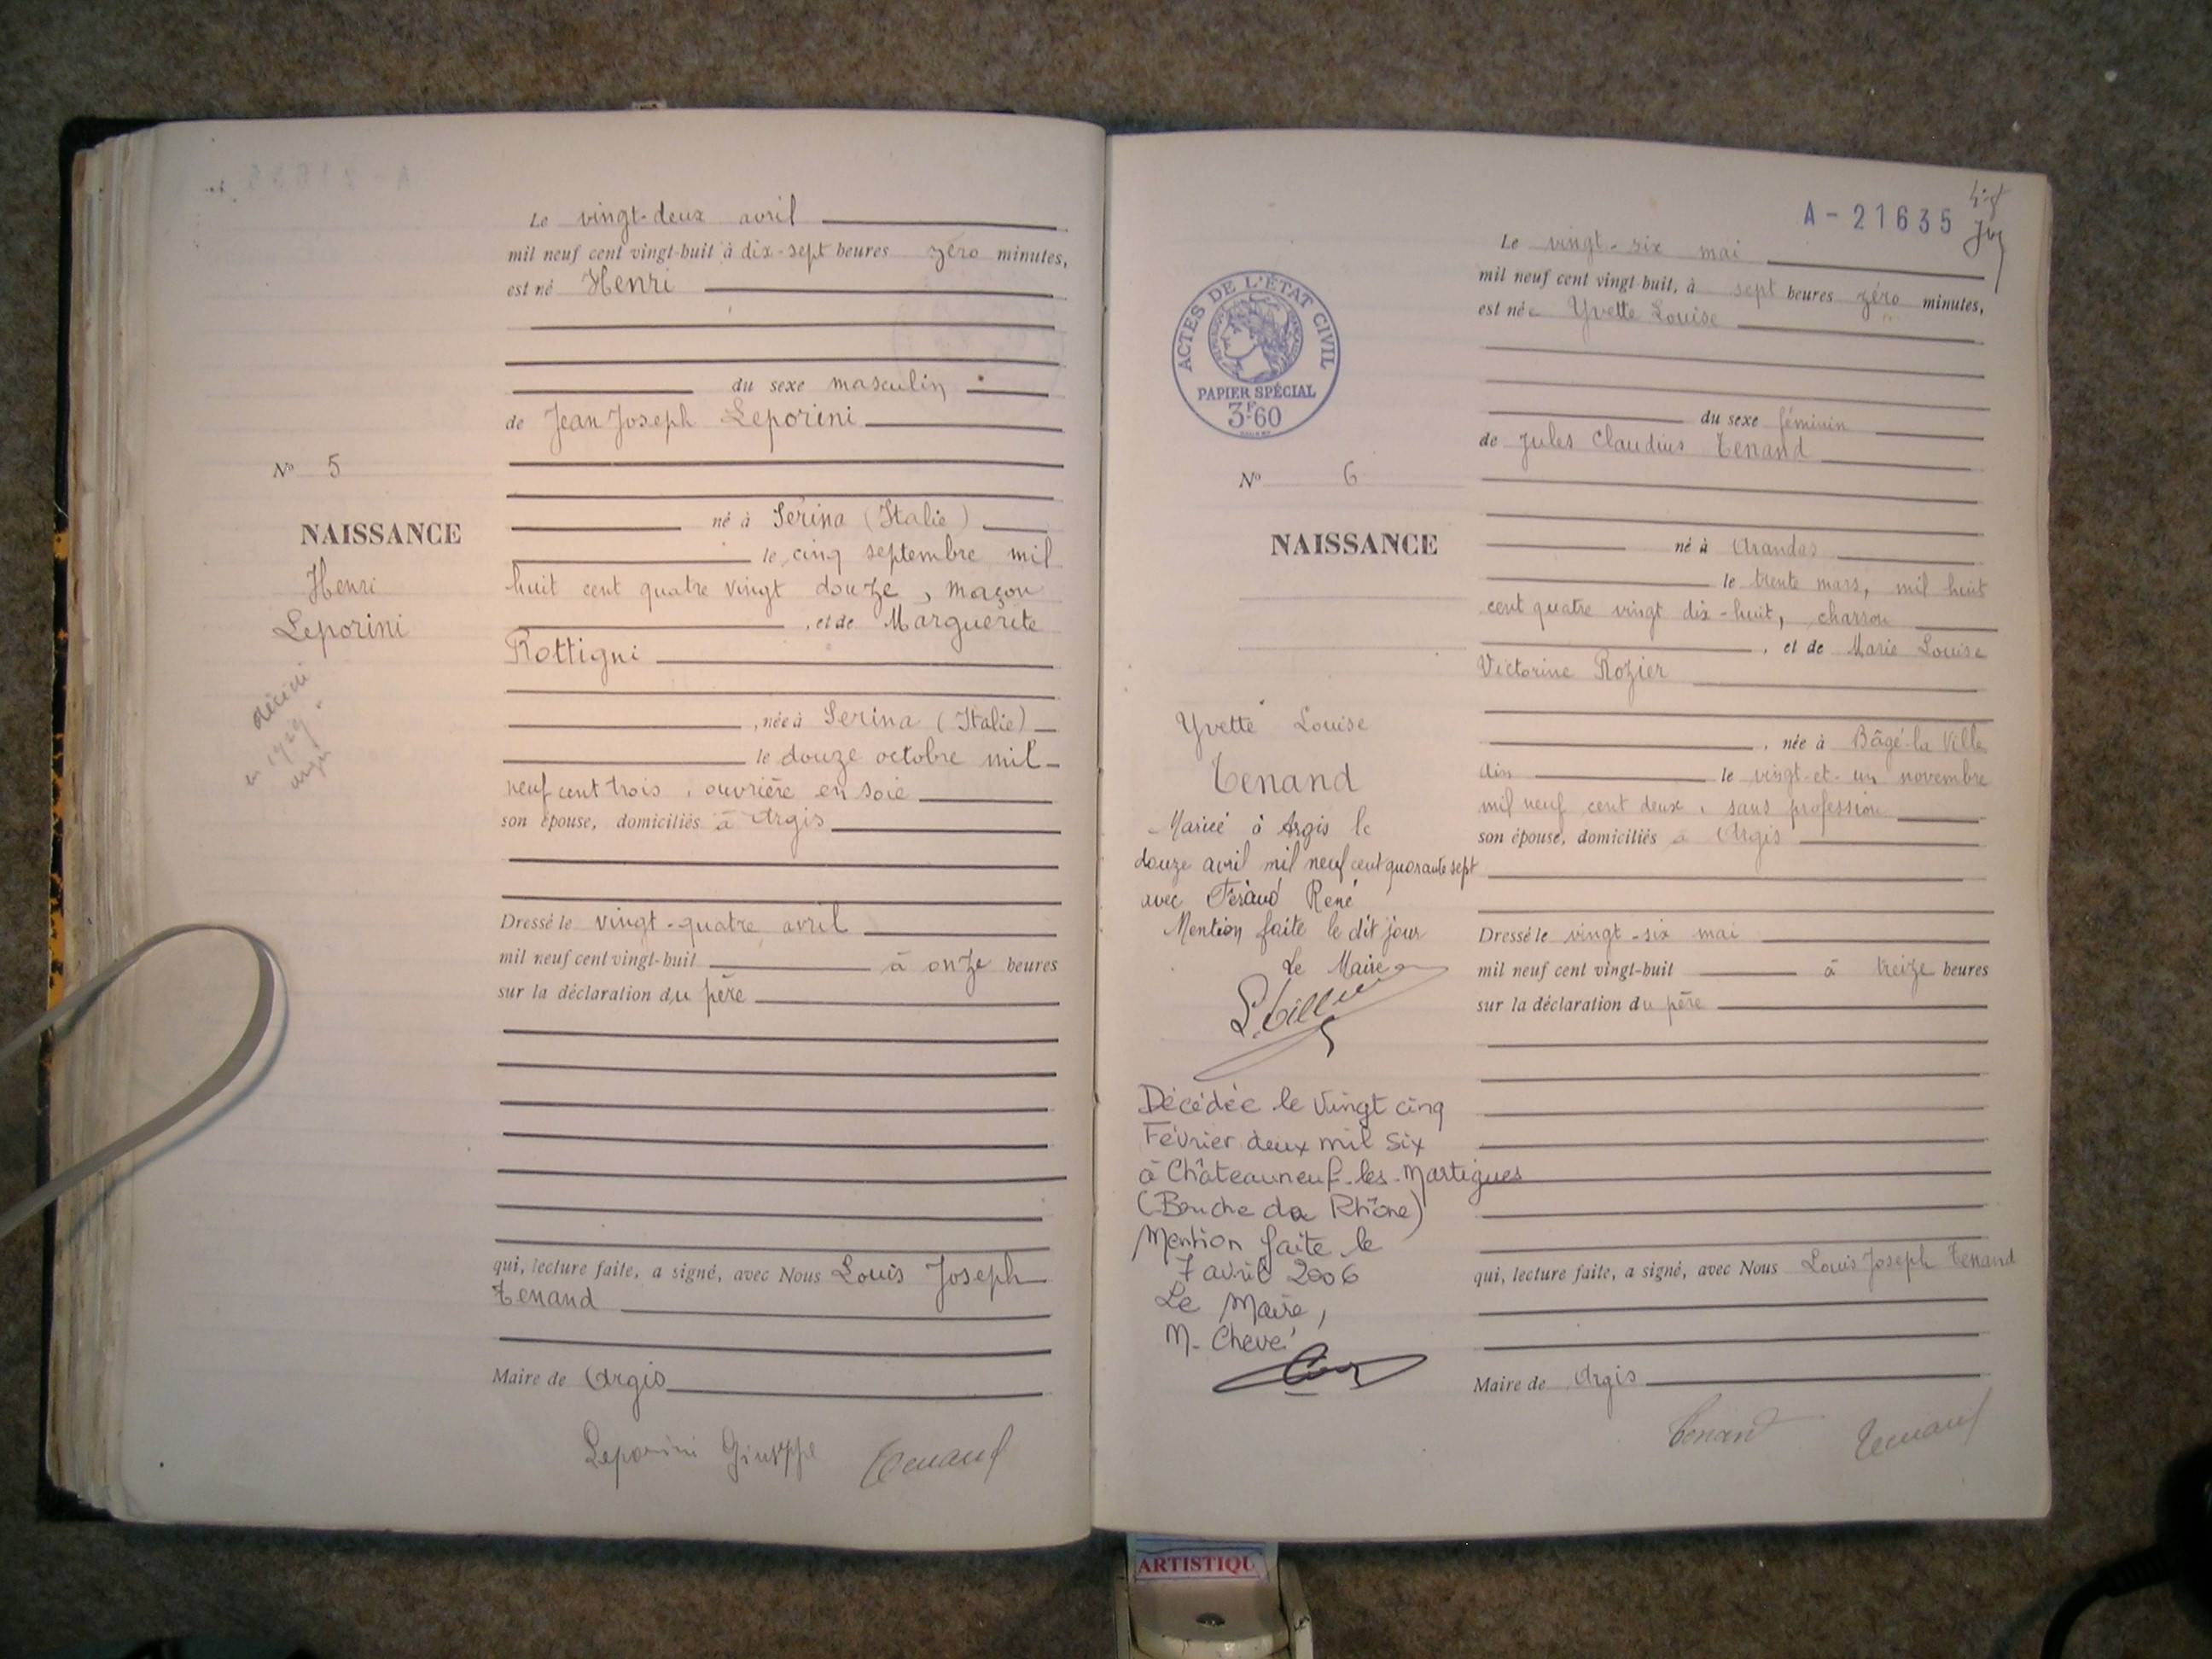 Le vingt-deux avril
mil neuf cent vingt-huit à dix-sept heures zéro minutes,
est né Henri
du sexe masculin
de Jean Joseph Leporini
N° 5
né à Serina (Italie)
NAISSANCE
le cinq septembre mil
Henri
huit cent quatre vingt douze, maçon
Leporini
, et de Marguerite
Rottigni
décédé
en 1929
, née à Serina (Italie)
le douze octobre mil
neuf cent trois, ouvrière en soie
son épouse, domiciliés à Argis
Dressé le vingt-quatre avril
mil neuf cent vingt-huit à onze heures
sur la déclaration du père
qui, lecture faite, a signé, avec Nous Louis Joseph
Tenand
Maire de Argis
Leporini Giuseppe Tenand
A-21635
Le vingt-six mai
mil neuf cent vingt-huit, à sept heures zéro minutes,
est née Yvette Louise
ACTES DE L'ÉTAT CIVIL
RÉPUBLIQUE FRANÇAISE
PAPIER SPÉCIAL
3F.60
du sexe féminin
de Jules Claudius Tenand
N° 6
NAISSANCE
né à Arandas
le trente mars, mil huit
cent quatre vingt dix-huit, charron
, et de Marie Louise
Victorine Rozier
, née à Bâgé-la Ville
din le vingt-et-un novembre
mil neuf cent deux, sans profession
son épouse, domiciliés à Argis
Yvette Louise
Tenand
Mariée à Argis le
douze avril mil neuf cent quarante sept
avec Féraud René
Mention faite le dit jour
Le Maire
Décédée le vingt cinq
Février deux mil six
à Châteauneuf-les-Martigues
(Bouche du Rhône)
Mention faite le
7 avril 2006
Le Maire,
M. Chevé
Dressé le vingt-six mai
mil neuf cent vingt-huit à treize heures
sur la déclaration du père
qui, lecture faite, a signé, avec Nous Louis Joseph Tenand
Maire de Argis
Tenand Tenand
ARTISTIQU